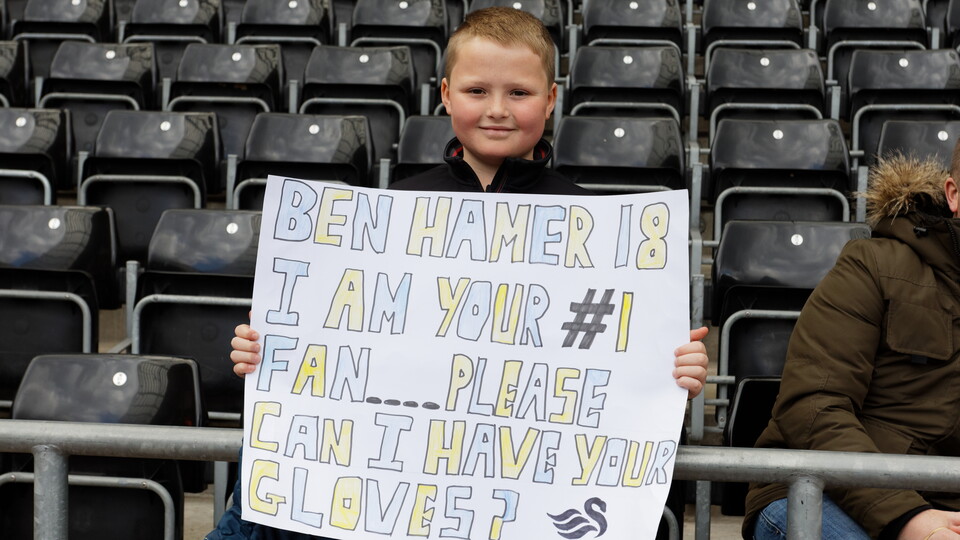 BEN HAMER 18
I AM YOUR #1
FAN____PLEASE
CAN I HAVE YOUR
GLOVES?